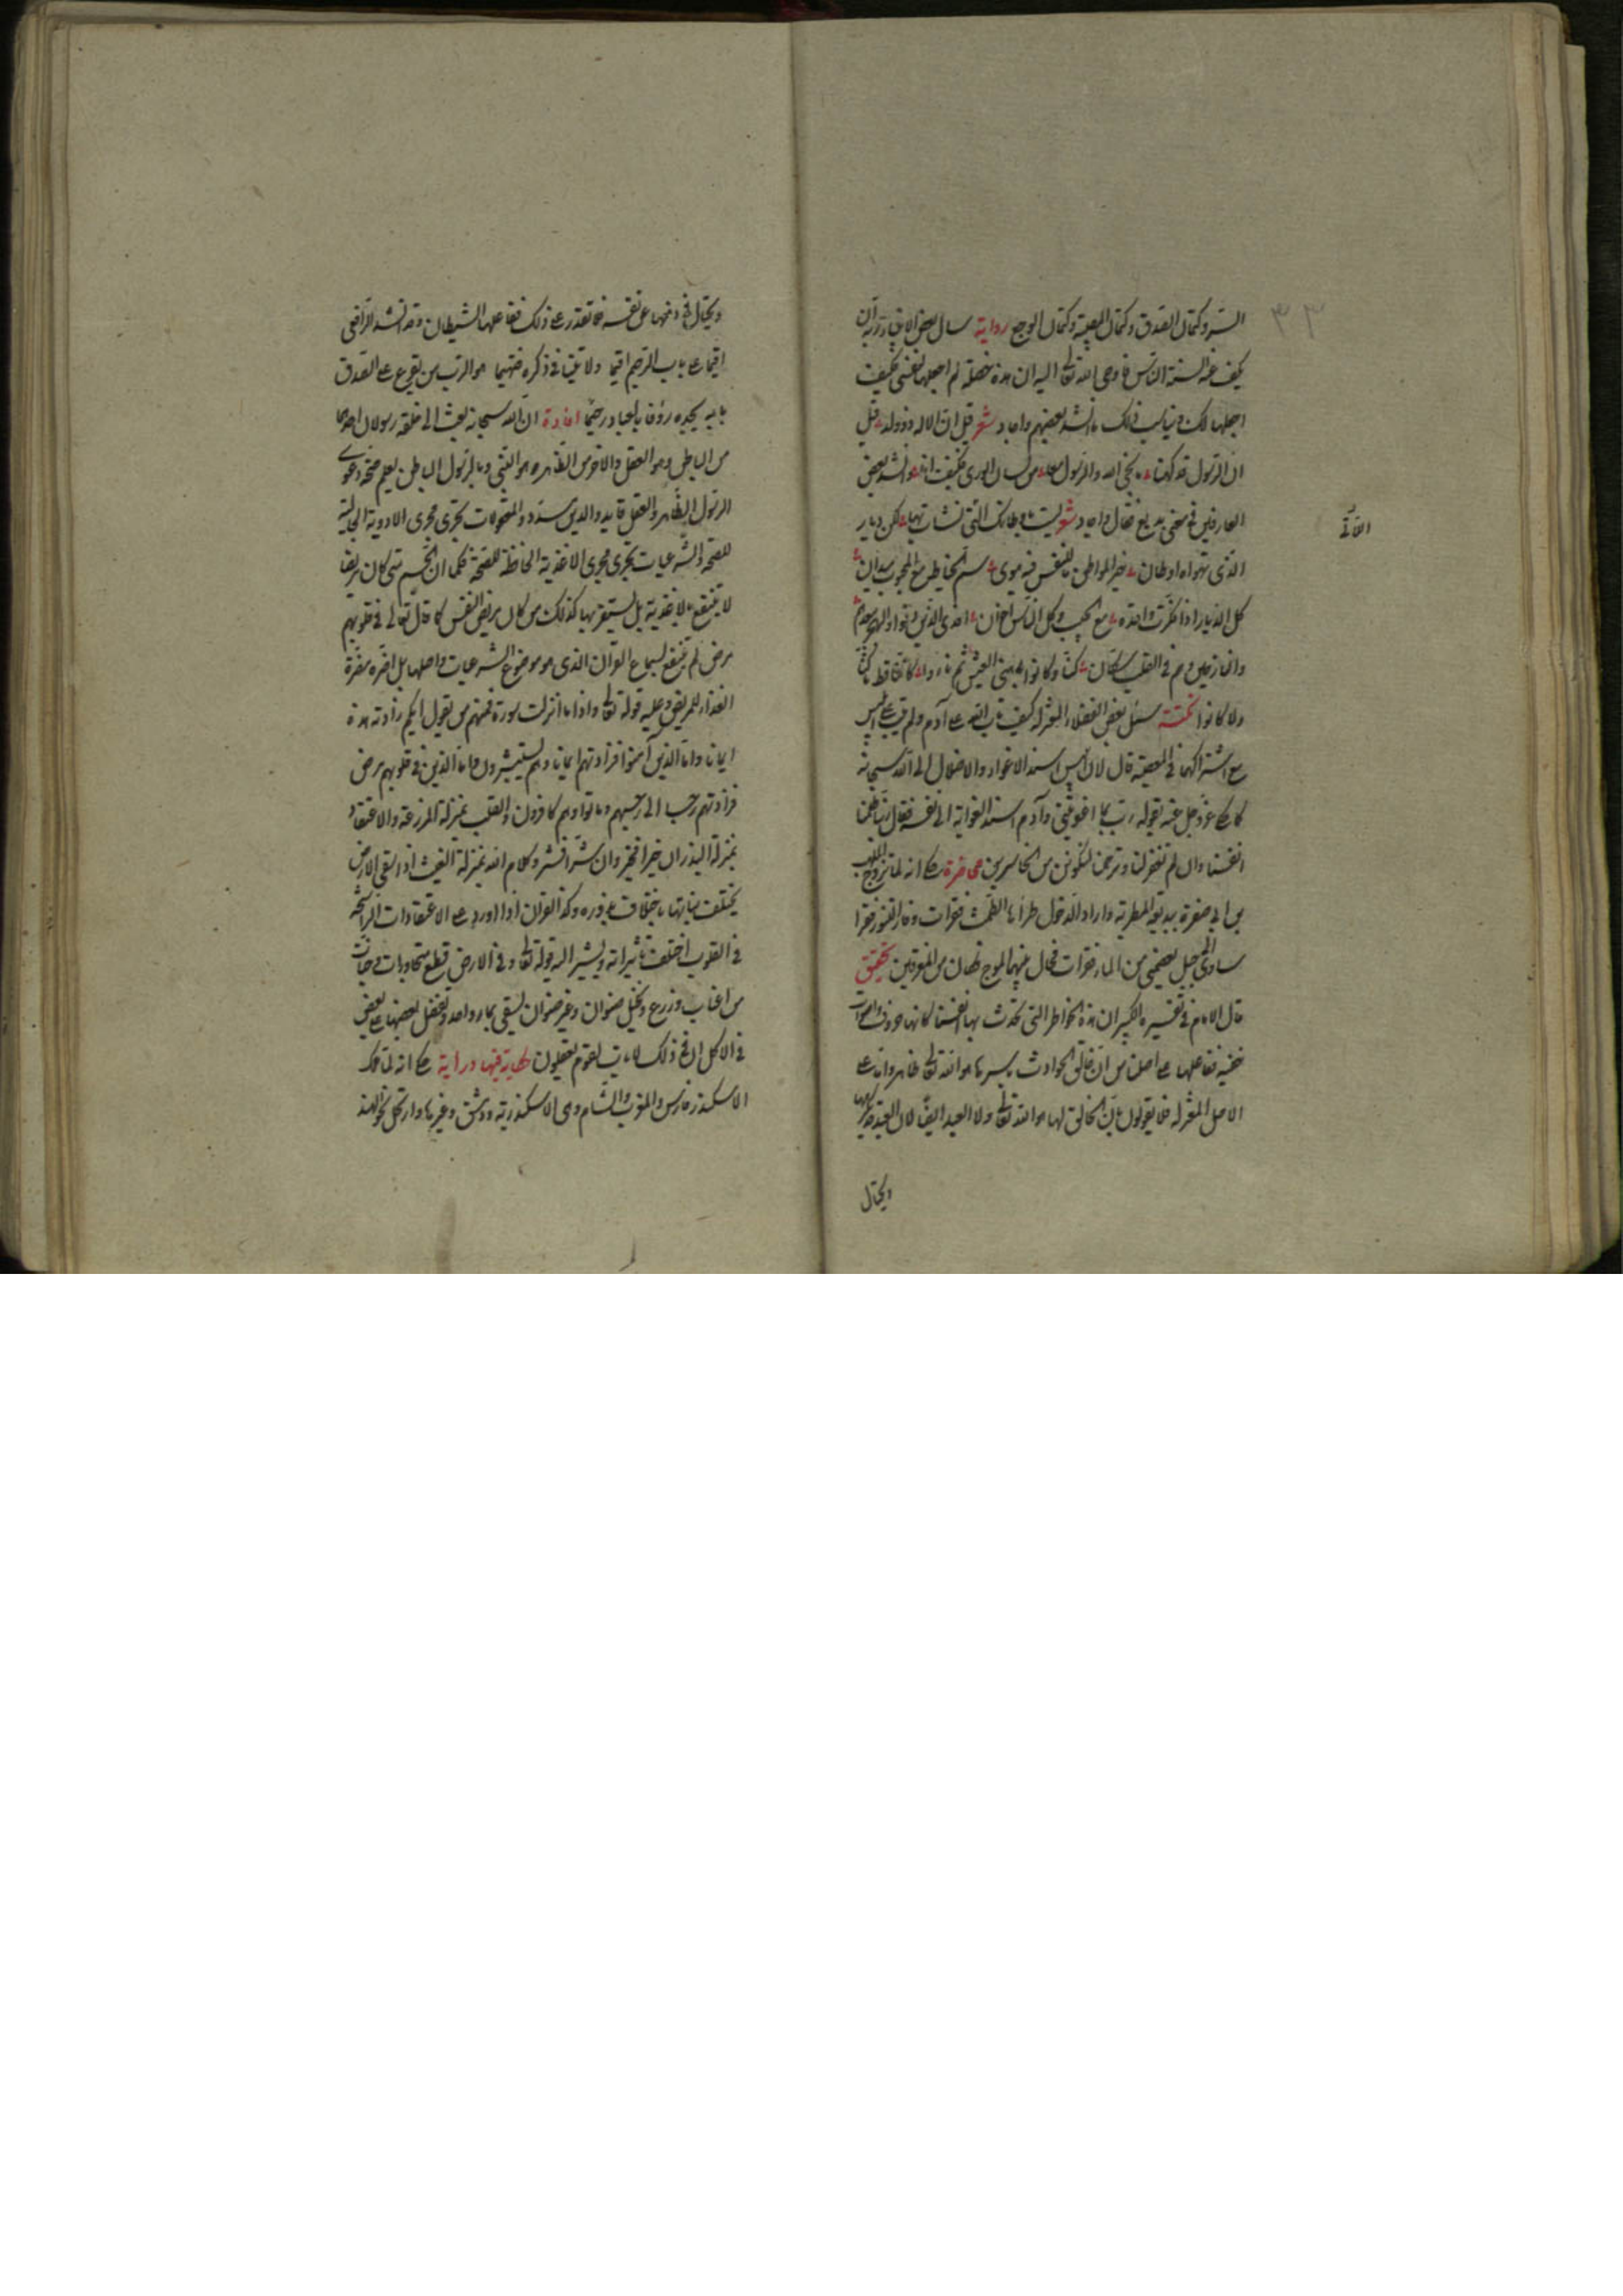 ٣٣
السر وكتمان الصدق وكتمان المصيبة وكتمان الوجع رواية سال بعض الانبياء ربه ان
يكف عنه السنة الناس فاوحى الله تعالى اليه ان هذه خصلة لم اجعلها لنفسى فكيف
اجعلها لك ويناسب ذلك ما انشد بعضهم واجاد شعر قيل ان الاله ذو ولد قيل
ان الرسول قد كهنا ما نجى الله والرسول معا من لسان الورى فكيف انا وانشد بعض
العارفين فى معنى بديع فقال واجاد شعر ليست باوطانك التى نشأت بها لكن ديار
الذى تهواه اوطان خير المواطن ما للنفس فيه هوى سم الخياط مع المحبوب ميدان
كل الديار اذا فكرت واحدة مع الحبيب وكل الناس اخوان افدى الذين
والنازلين وهم فى القلب سكان كنا وكانوا باهنى العيش ثم ناوا كاننا قط ما كنا
ولا كانوا نكتة سئل بعض الفضلاء كيف تاب الله على آدم ولم يتب على ابليس
مع اشتراكهما فى المعصية قال لان ابليس اسند الاغواء والاضلال الى الله سبحانه
كما حكى عز وجل عنه بقوله رب بما اغويتنى وآدم اسند الغواية الى نفسه فقال ربنا ظلمنا
انفسنا وان لم تغفر لنا وترحمنا لنكونن من الخاسرين محاضرة حكى انه لما تزوج المهلب
بن ابى صفرة ببديعة المطربة واراد الدخول طرأ بها الطمث فقرأت وفار التنور فقرأ
سآوى الى جبل يعصمنى من الماء فقرأت فحال بينهما الموج فكان من المغرقين تحقيق
قال الامام فى تفسيره الكبير ان هذه الخواطر التى تحدث بها انفسنا كانها حروف واصوات
خفية ففاعلها على اصلنا من ان خالق الحوادث باسرها هو الله تعالى ظاهر واما على
الاصل المعتزلة فلا يقولون بان الخالق لها هو الله تعالى ولا العبد ايضا لان العبد
ويحتال
ويحتال فى دفعها عن نفسه فلا تقدر على ذلك ففاعلها الشيطان وقد انشد الرافعى
اقيما على باب الرحيم اقيما ولا تنيا فى ذكره فتهيما هو الرب من يقرع على الصدق
بابه يجده رؤفا بالعباد رحيما افادة ان الله سبحانه بعث الى خلقه رسولان احدهما
من الباطن وهو العقل والاخر من الظاهر وهو النبى وبالرسول الباطن يعلم صحة دعوى
الرسول الظاهر والعقل قايد والدين مسدد والمعقولات تجرى مجرى الادوية الجالبة
للصحة والشرعيات تجرى مجرى الاغذية الحافظة للصحة فكما ان الجسم متى كان مريضا
لا ينتفع بالاغذية بل يستضر بها كذلك من كان مريض النفس كما قال تعالى فى قلوبهم
مرض لم ينتفع بسماع القرآن الذى هو موضوع الشرعيات واصلها بل اضره مضرة
الغذاء للمريض وعليه قوله تعالى واذا ما انزلت سورة فمنهم من يقول ايكم زادته هذه
ايمانا واما الذين آمنوا فزادتهم ايمانا وهم يستبشرون واما الذين فى قلوبهم مرض
فزادتهم رجسا الى رجسهم وماتوا وهم كافرون والقلب بمنزلة المزرعة والاعتقاد
بمنزلة البذر ان خيرا فخير وان شرا فشر وكلام الله بمنزلة الغيث اذا سقى الارض
يختلف نباتها باختلاف بذوره وكذا القرآن اذا اورد على الاعتقادات الراسخة
فى القلوب اختلفت تاثيراته ويشير اليه قوله تعالى وفى الارض قطع متجاورات وجنات
من اعناب وزرع ونخيل صنوان وغير صنوان يسقى بماء واحد ونفضل بعضها على بعض
فى الاكل ان فى ذلك لايات لقوم يعقلون حكاية فيها دراية حكى انه لما ملك
الاسكندر فارس والمغرب والشام وبنى الاسكندرية ودمشق وغيرها وارتحل نحو الهند